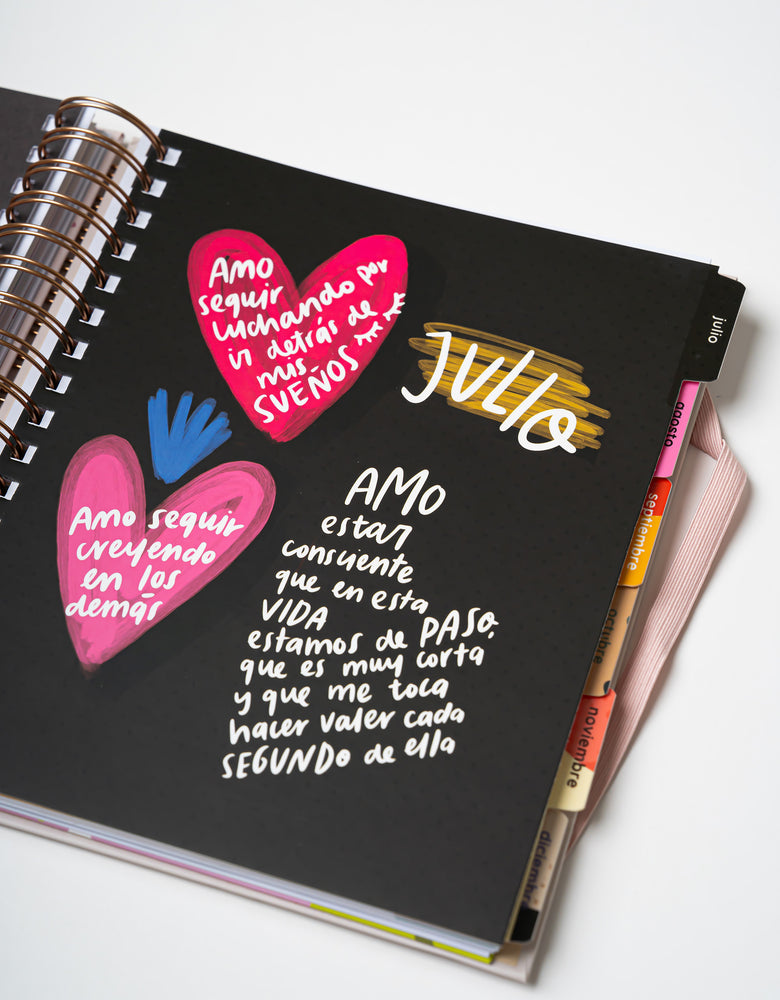 AMO
seguir
luchando por
ir detrás de
mis
SUEÑOS
JULIO
Amo seguir
creyendo
en los
demás
AMO
estar
consciente
que en esta
VIDA
estamos de PASO,
que es muy corta
y que me toca
hacer valer cada
SEGUNDO de ella
julio
agosto
septiembre
octubre
noviembre
diciembre